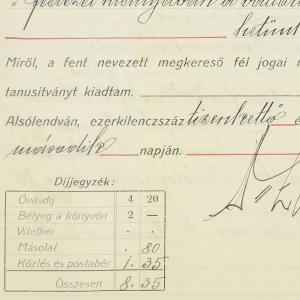 hetünk
Miről, a fent nevezett megkereső fél jogai
tanusítványt kiadtam.
Alsólendván, ezerkilenczszáz tizenkettő
második napján.
Dijjegyzék:
Óvásdij 4 20
Bélyeg a könyvön 2 —
Vitelbér . .
Másolat . 80
Közlés és postabér 1. 35
Összesen 8. 35